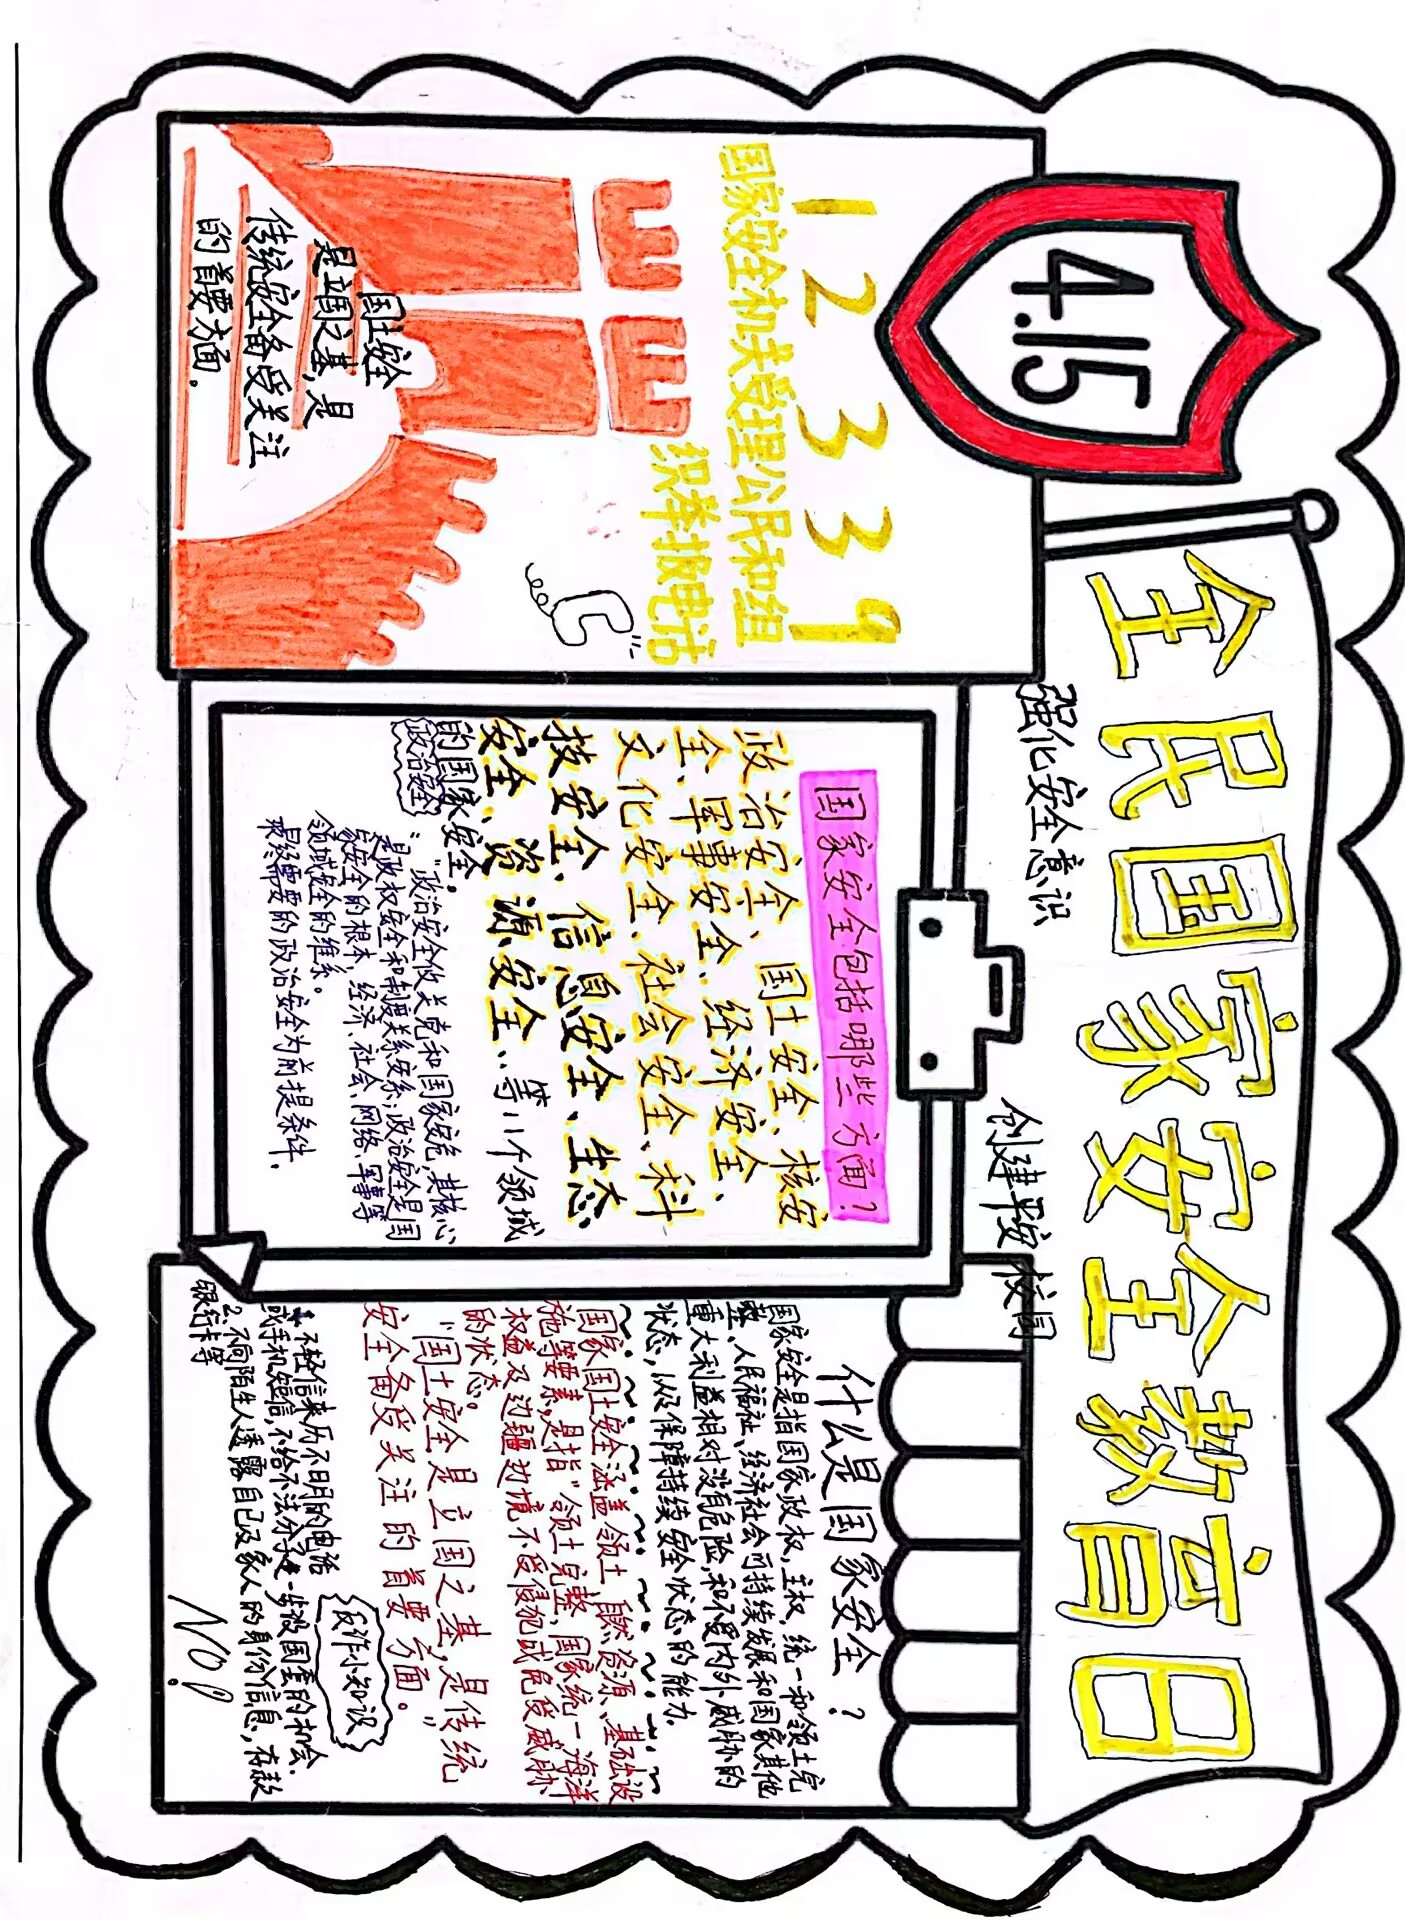 4.15
全民国家安全教育日
强化安全意识
创建平安校园
12339
国家安全机关受理公民和组
织举报电话
国土安全
是立国之基,是
传统安全备受关注
的首要方面.
国家安全包括哪些方面?
政治安全、国土安全、核安
全、军事安全、经济安全、
文化安全、社会安全、科
技安全、信息安全、生态
安全、资源安全..等11个领域
的国家安全.
政治安全:"政治安全攸关党和国家安危,其核心
是政权安全和制度关系安系;政治安全是国
家安全的根本,经济、社会、网络、军事等
领域安全的维系。
最终需要的政治安全为前提条件.
什么是国家安全?
国家安全是指国家政权,主权,统一和领土完
整、人民福祉、经济社会可持续发展和国家其他
重大利益相对没有危险,和不受内外威胁的
状态,以及保障持续安全状态的能力.
国家国土安全涵盖领土、自然资源、基础设
施等要素,是指"领土完整、国家统一,海洋
权益及边疆边境不受侵犯或免受威胁
的状态。
"国土安全是立国之基,是传统
安全备受关注的首要方面。"
反诈小知识
1.不轻信来历不明的电话
或手机短信,不给不法分子进一步设圈套的机会.
2.不向陌生人透露自己及家人的身份信息,存款
银行卡等
NO!